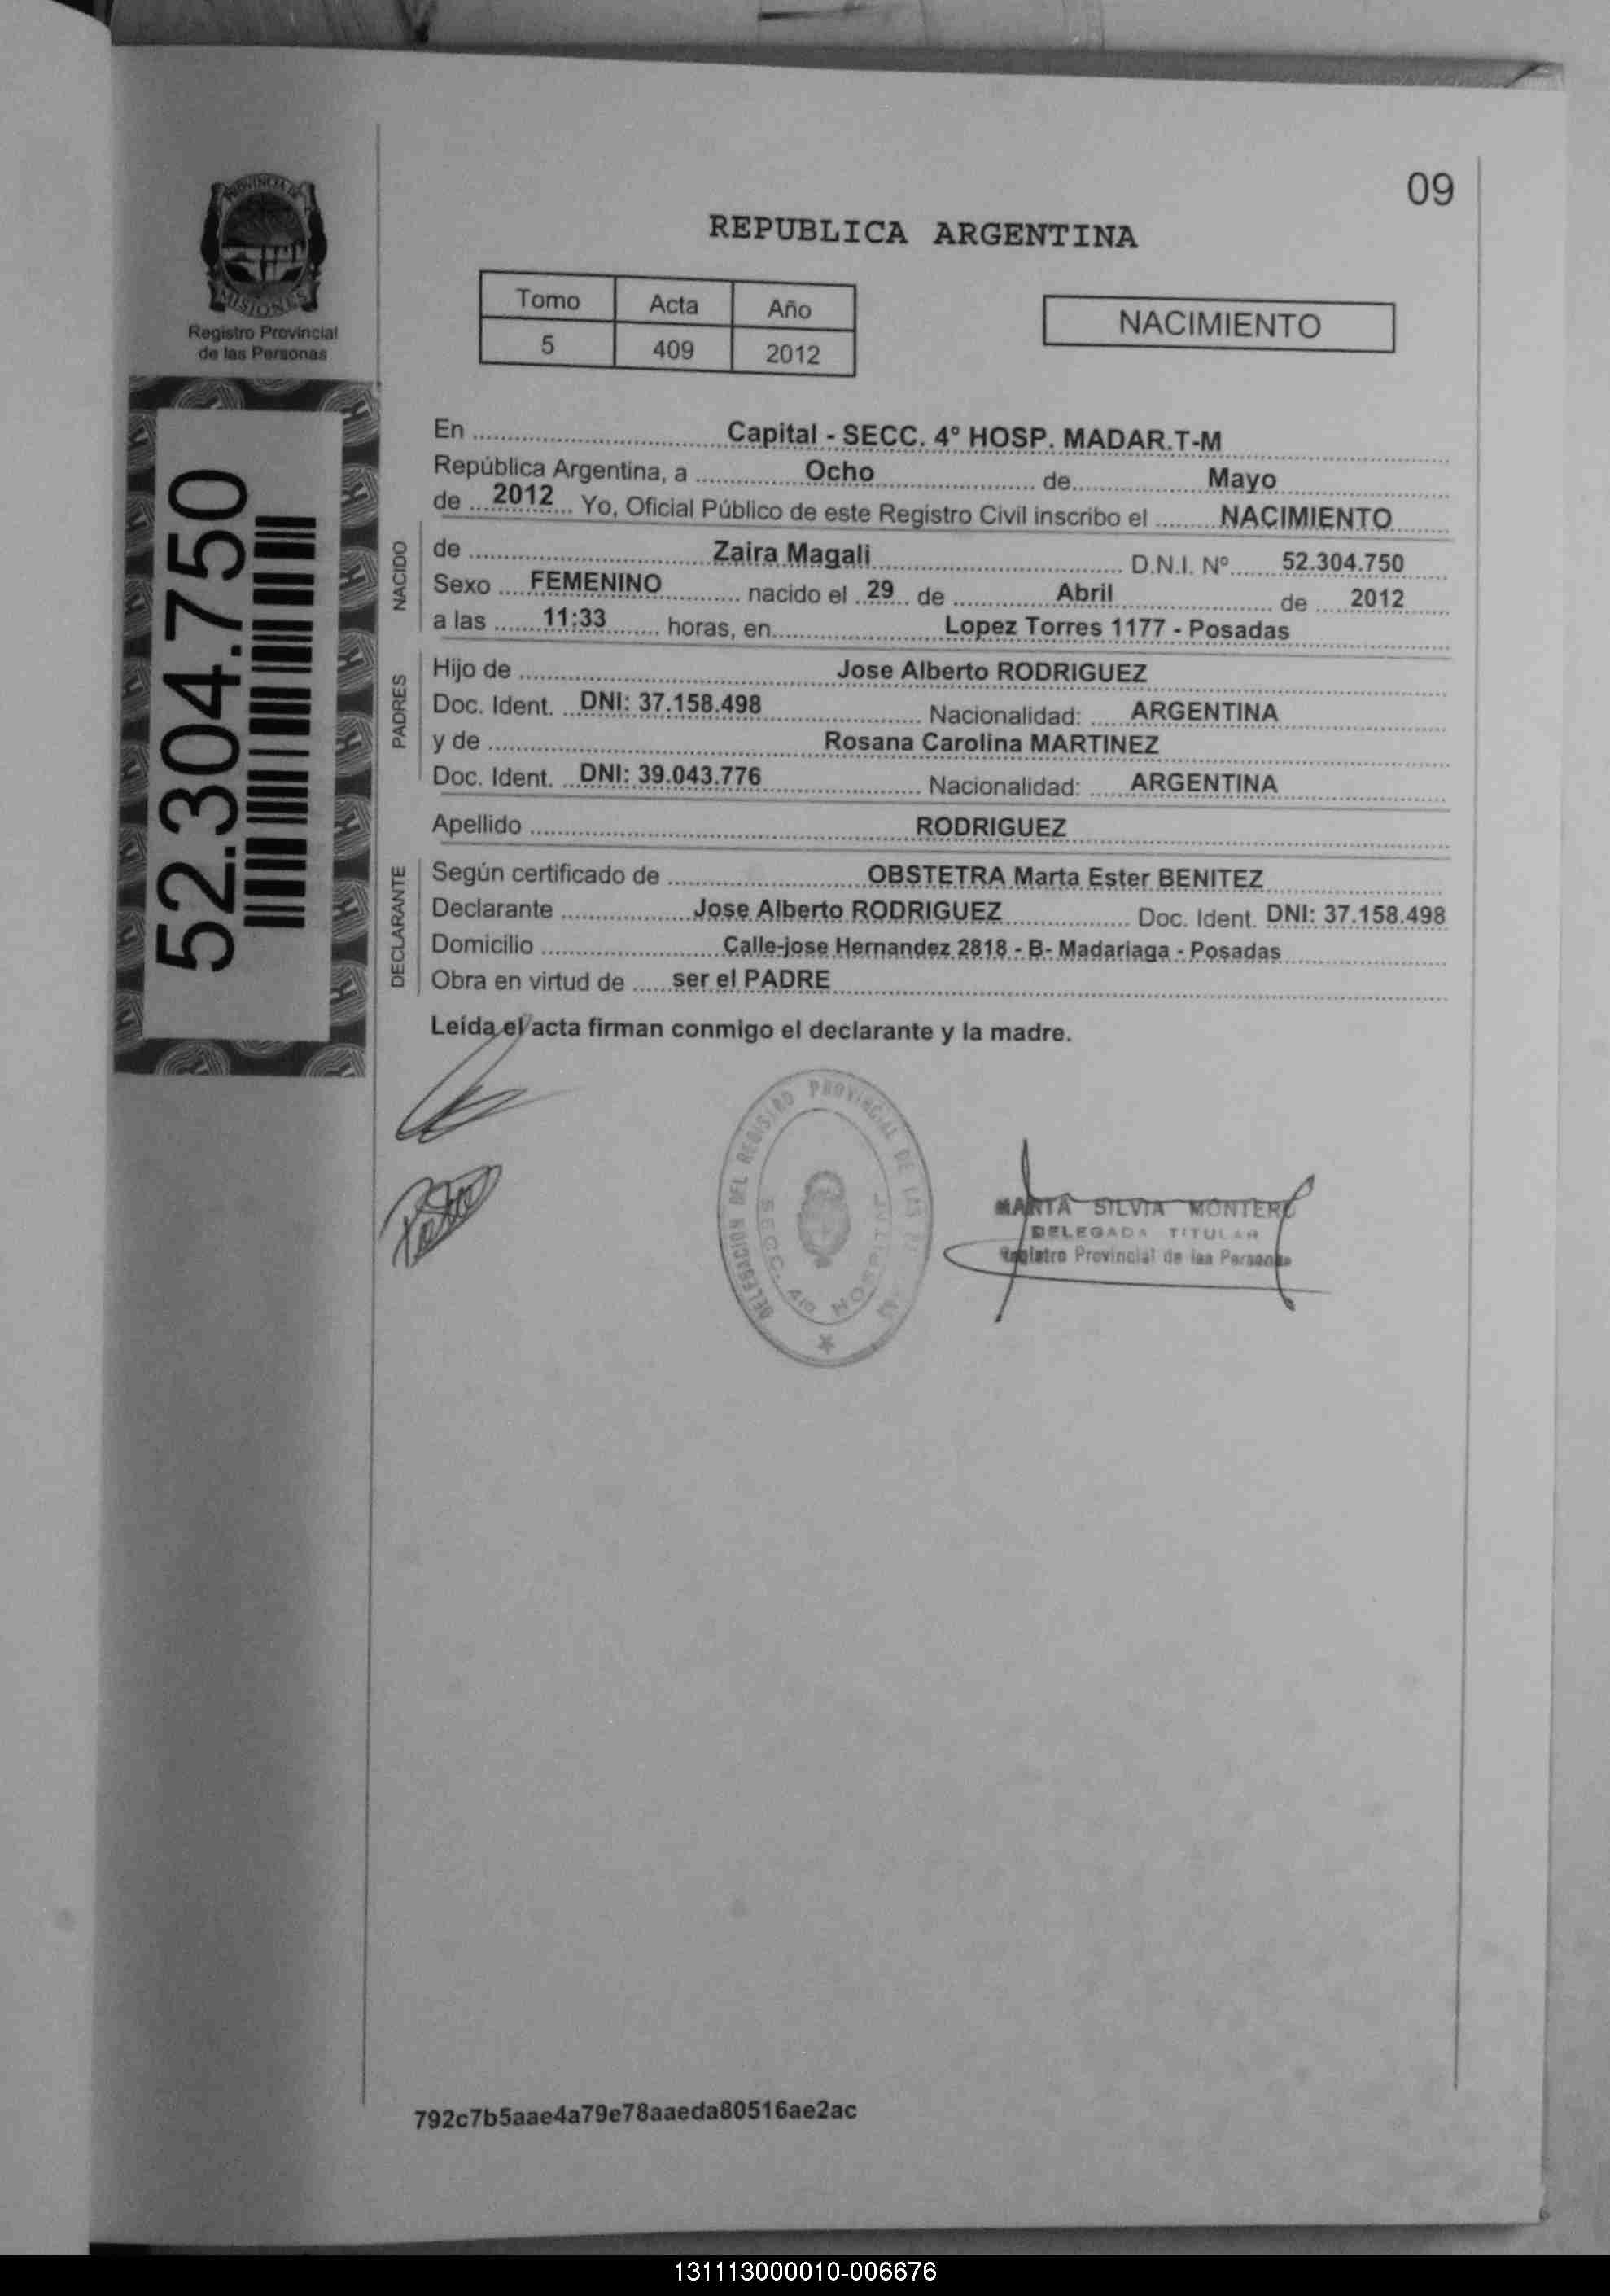 09
REPUBLICA ARGENTINA
Tomo Acta Año
5 409 2012
NACIMIENTO
PROVINCIA DE
MISIONES
Registro Provincial
de las Personas
52.304.750
En Capital - SECC. 4° HOSP. MADAR.T-M
República Argentina, a Ocho de Mayo
de 2012 Yo, Oficial Público de este Registro Civil inscribo el NACIMIENTO
NACIDO
de Zaira Magali D.N.I. Nº 52.304.750
Sexo FEMENINO nacido el 29 de Abril de 2012
a las 11:33 horas, en Lopez Torres 1177 - Posadas
PADRES
Hijo de Jose Alberto RODRIGUEZ
Doc. Ident. DNI: 37.158.498 Nacionalidad: ARGENTINA
y de Rosana Carolina MARTINEZ
Doc. Ident. DNI: 39.043.776 Nacionalidad: ARGENTINA
Apellido RODRIGUEZ
DECLARANTE
Según certificado de OBSTETRA Marta Ester BENITEZ
Declarante Jose Alberto RODRIGUEZ Doc. Ident. DNI: 37.158.498
Domicilio Calle-jose Hernandez 2818 - B- Madariaga - Posadas
Obra en virtud de ser el PADRE
Leída el acta firman conmigo el declarante y la madre.
DELEGACION DEL REGISTRO PROVINCIAL DE LAS
SECC. 4ta HOSPITAL
MARTA SILVIA MONTERO
DELEGADA TITULAR
Registro Provincial de las Personas
792c7b5aae4a79e78aaeda80516ae2ac
131113000010-006676